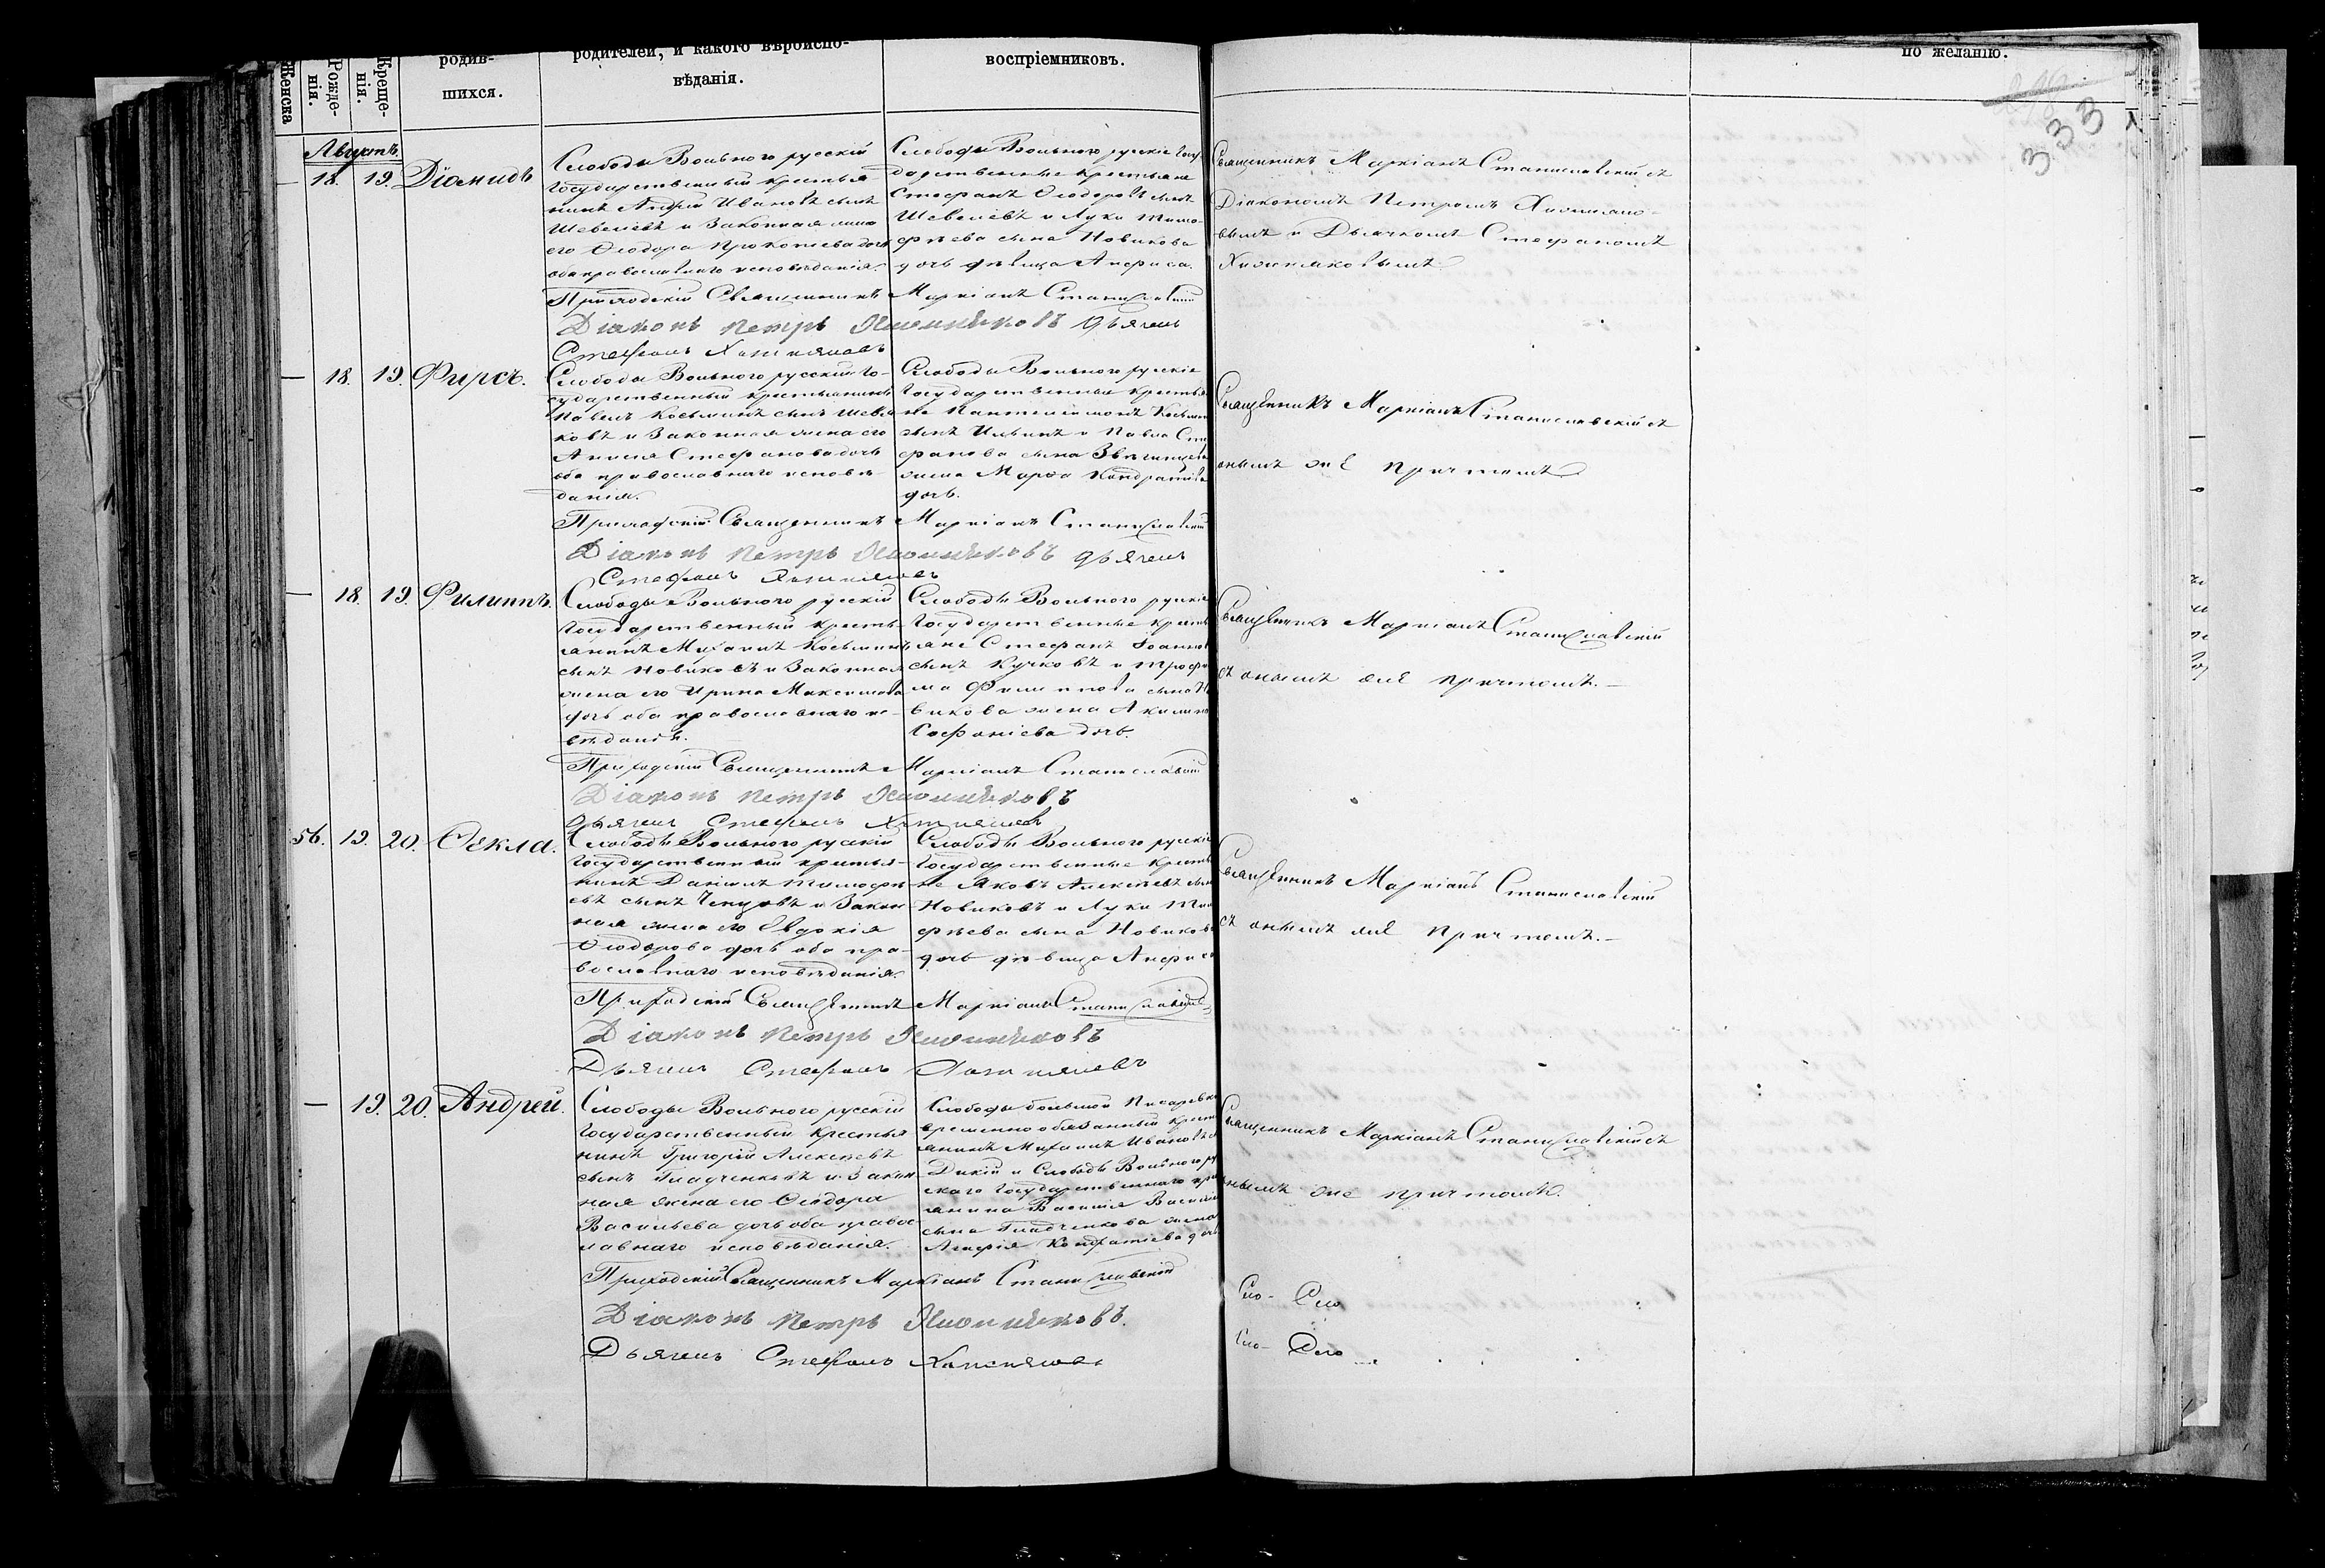 Женска
Рожде-
нія.
Креще-
нія.
родив-
шихся.
родителей, и какого вѣроиспо-
вѣданія.
воспріемниковъ.
по желанію.
333
Августъ.
18. 19. Діомидъ
Слободы Вольного русскій
государственный крестья
нинъ Андрей Ивановъ сынъ
Шевелевъ и Законная жена
его Ѳеодора Прокопіева дочь
оба православнаго исповѣданія.
Слободы Вольного русскіе госу
дарственные крестьяне
Стефанъ Ѳеодоровъ сынъ
Шевелевъ и Луки Тимо-
фѣева сына Новикова
дочь дѣвица Анфиса.
Священникъ Маркіанъ Станиславскій съ
Діакономъ Петромъ
вымъ и Дьячкомъ Стефаномъ
Приходскій Священникъ Маркіанъ Станиславскій
Діаконъ Петръ Дьячекъ
Стефанъ
— 18. 19. Фирсъ.
Слободы Вольного русскій го-
сударственный крестьянинъ
Павелъ Косьминъ сынъ
ковъ и Законная жена его
Стефанова дочь
оба православнаго исповѣ-
данія.
Слободы Вольного русскіе
государственные крестья
не Пантелеимонъ Косьмин
сынъ Ильинъ и Павла Сте
фанова сына
жена Марѳа Кондратіева
дочь.
Священникъ Маркіанъ Станиславскій съ
онымъ же причтомъ
Приходскій Священникъ Маркіанъ Станиславскій
Діаконъ Петръ Дьячекъ
Стефанъ
— 18. 19. Филиппъ.
Слободы Вольного русскій
Государственный кресть-
янинъ Михаилъ Косьминъ
сынъ Новиковъ и Законная
жена его Ирина Максимова
дочь оба православнаго ис-
вѣданія.
Слободы Вольного русскіе
Государственные кресть
яне Стефанъ Іоаннов
сынъ Кучковъ и Трофи
ма Филиппова сына Но
викова жена Акилина
Софоніева дочь.
Священникъ Маркіанъ Станиславскій
съ онымъ же причтомъ.—
Приходскій Священникъ Маркіанъ Станиславскій
Діаконъ Петръ
Дьячекъ Стефанъ
56. 19. 20. Ѳекла.
Слободы Вольного русскій
Государственный крестья-
нинъ Даніилъ Тимофѣ
евъ сынъ и Закон
ная жена его Евдокія
Ѳеодорова дочь оба пра-
вославнаго исповѣданія.
Слободы Вольного русскіе
Государственные крестья
не Яковъ Алексѣевъ сын
Новиковъ и Луки Тимо
фѣева сына Новикова
дочь дѣвица Анфиса
Священникъ Маркіанъ Станиславскій
съ онымъ же причтомъ.—
Приходскій Священникъ Маркіанъ Станиславскій
Діаконъ Петръ
Дьячекъ Стефанъ
— 19. 20. Андрей.
Слободы Вольного русскій
государственный крестья
нинъ Григорій Алексѣевъ
сынъ Гладченковъ и Закон
ная жена его Ѳеодора
Васильева дочь оба правос
лавнаго исповѣданія.
Слободы большой Писаревки
временнообязанный крест
янинъ Михаилъ Ивановъ с
Дикій и Слободы Вольного ру
скаго Государственнаго крес
янина Василія Васильев
сына Гладченкова жена
Агафія Кондратіева дочь
Священникъ Маркіанъ Станиславскій съ
онымъ же причтомъ.
Приходскій Священникъ Маркіанъ Станиславскій
Діаконъ Петръ
Дьячекъ Стефанъ